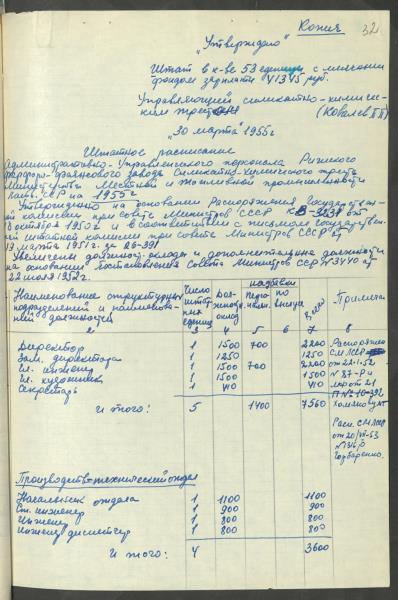 Копия
32
"Утверждаю"
Штат в к-ве 53 единиц с месячн
фондом зарплаты 41345 руб.
Управляющий силикатно-химичес-
ким трестом
(Ковалев П П)
"30 марта" 1955 г
Штатное расписание
Административно-Управленческого персонала Рижского
фарфоро-фаянсового завода Силикатно-химического треста
Министерства Местной и топливной промышленности
Латв. ССР на 1955 г
Утверждено на основании Распоряжения Государствен-
ной комиссии при совете Министров СССР
октября 1950 г и в соответствии с письмом Государствен-
ной штатной комиссии при совете Министров СССР от
19 марта 1951 г. за 26-391
Увеличены должност. оклады и дополнительные должности
на основании постановления Совета Министров СССР № от
22 июля 1952 г.
Наименование структурных подразделений и наименова- ний должностей
Число штат- ных единиц
Дол- жност. оклад
надбавки
перс- нальн.
по выслуге
Всего
Примеч.
2 3 4 5 6 7 8
Директор 1 1500 700 2200
Зам. директора 1 1250 1250
Гл. инженер 1 1500 700 2200
Гл. художник 1 1500 1500
Секретарь 1 410 410
И того: 5 1400 7560
Распоряжен
СМ ЛССР
от 22-1.52
№ 87-р и
от 21
Расп. СМ ЛССР
от 20/VI-53
Горбаренко.
Производств-технический отдел
Начальник отдела 1 1100 1100
Ст. инженер 1 900 900
Инженер 1 800 800
Инженер диспетчер 1 800 800
И того: 4 3600